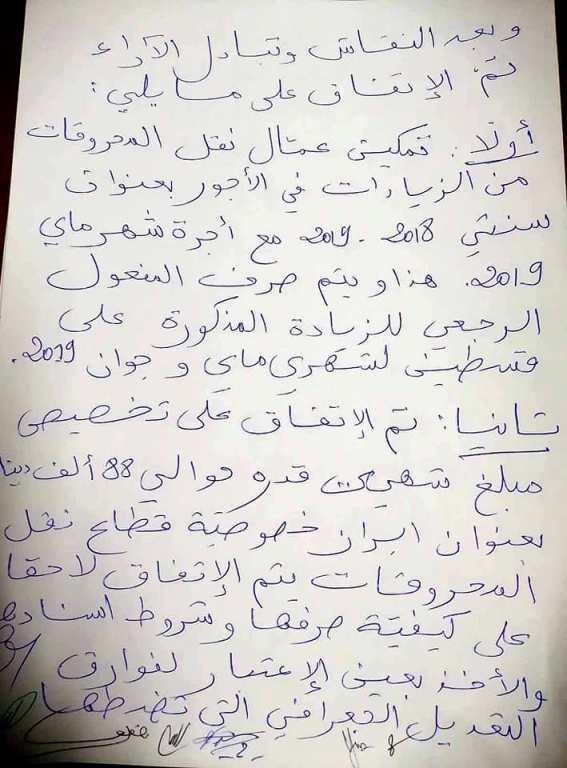 وبعد النقاش وتبادل الآراء
تمّ الإتفاق على ما يلي:
أولا: تمكين عمّال نقل المحروقات
من الزيادات في الأجور بعنوان
سنتي 2018 - 2019 مع أجرة شهر ماي
2019. هذا ويتم صرف المفعول
الرجعي للزيادة المذكورة على
قسطين لشهري ماي و جوان 2019.
ثانيا: تم الإتفاق على تخصيص
مبلغ شهري قدره حوالي 88 ألف دينا
بعنوان ابراز خصوصيّة قطاع نقل
المحروقات يتم الإتفاق لاحقا
على كيفيّة صرفها وشروط اسنادها
والأخذ بعين الإعتبار لفوارق
التعديل التي